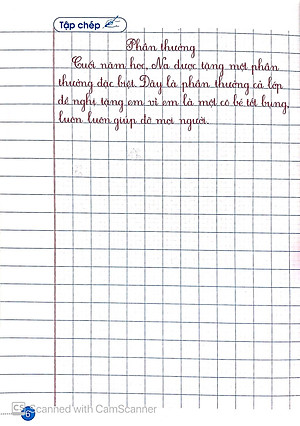 Tập chép
Phần thưởng
Cuối năm học, Na được tặng một phần
thưởng đặc biệt. Đây là phần thưởng cả lớp
đề nghị tặng em vì em là một cô bé tốt bụng,
luôn luôn giúp đỡ mọi người.
CS Scanned with CamScanner